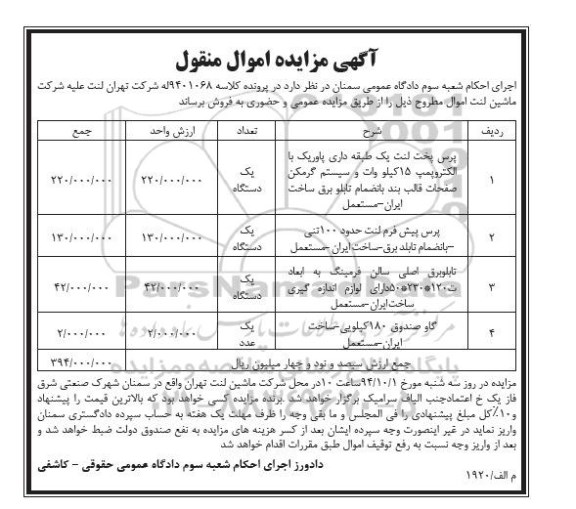 آگهی مزایده اموال منقول
اجرای احکام شعبه سوم دادگاه عمومی سمنان در نظر دارد در پرونده کلاسه ۹۴۰۱۰۶۸له شرکت تهران لنت علیه شرکت
ماشین لنت اموال مطروح ذیل را از طریق مزایده عمومی و حضوری به فروش برساند
ردیف شرح تعداد ارزش واحد جمع
۱ پرس پخت لنت یک طبقه داری پاوریک با الکتروپمپ ۱۵کیلو وات و سیستم گرمکن صفحات قالب بند بانضمام تابلو برق ساخت ایران-مستعمل یک دستگاه ۲۲۰/۰۰۰/۰۰۰ ۲۲۰/۰۰۰/۰۰۰
۲ پرس پیش فرم لنت حدود ۱۰۰تنی -بانضمام تابلد برق-ساخت ایران -مستعمل یک دستگاه ۱۳۰/۰۰۰/۰۰۰ ۱۳۰/۰۰۰/۰۰۰
۳ تابلوبرق اصلی سالن فرمینگ به ابعاد ۵۰*۲۲۰*۱۲۰دارای لوازم اندازه گیری ساخت‌ایران-مستعمل یک دستگاه ۴۲/۰۰۰/۰۰۰ ۴۲/۰۰۰/۰۰۰
۴ گاو صندوق ۱۸۰کیلویی-ساخت ایران-مستعمل یک عدد ۲/۰۰۰/۰۰۰ ۲/۰۰۰/۰۰۰
جمع ارزش سیصد و نود و چهار میلیون ریال ۳۹۴/۰۰۰/۰۰۰
مزایده در روز سه شنبه مورخ ۹۴/۱۰/۱ساعت ۱۰در محل شرکت ماشین لنت تهران واقع در سمنان شهرک صنعتی شرق
فاز یک خ اعتمادجنب الیاف سرامیک برگزار خواهد شد .برنده مزایده کسی خواهد بود که بالاترین قیمت را پیشنهاد
و۱۰٪کل مبلغ پیشنهادی را فی المجلس و ما بقی وجه را ظرف مهلت یک هفته به حساب سپرده دادگستری سمنان
واریز نماید در غیر اینصورت وجه سپرده ایشان بعد از کسر هزینه های مزایده به نفع صندوق دولت ضبط خواهد شد و
بعد از واریز وجه نسبت به رفع توقیف اموال طبق مقررات اقدام خواهد شد
دادورز اجرای احکام شعبه سوم دادگاه عمومی حقوقی - کاشفی
م الف/۱۹۲۰
ParsNamadData